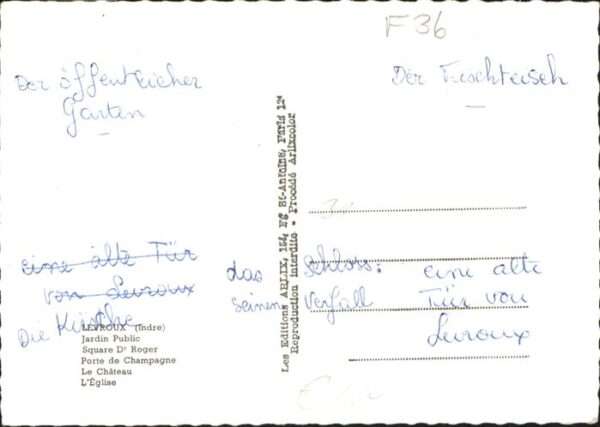 F36
Der öffentlicher
Garten
Der Fischteich
eine alte Tür
von Levroux
Die Kirche
das Schloss:
seinen Verfall
eine alte
Tür von
Levroux
LEVROUX (Indre)
Jardin Public
Square Dr Roger
Porte de Champagne
Le Château
L'Église
Les Editions ARLIX, 164, Fg St-Antoine, Paris 12e
Reproduction interdite - Procédé Arlixcolor